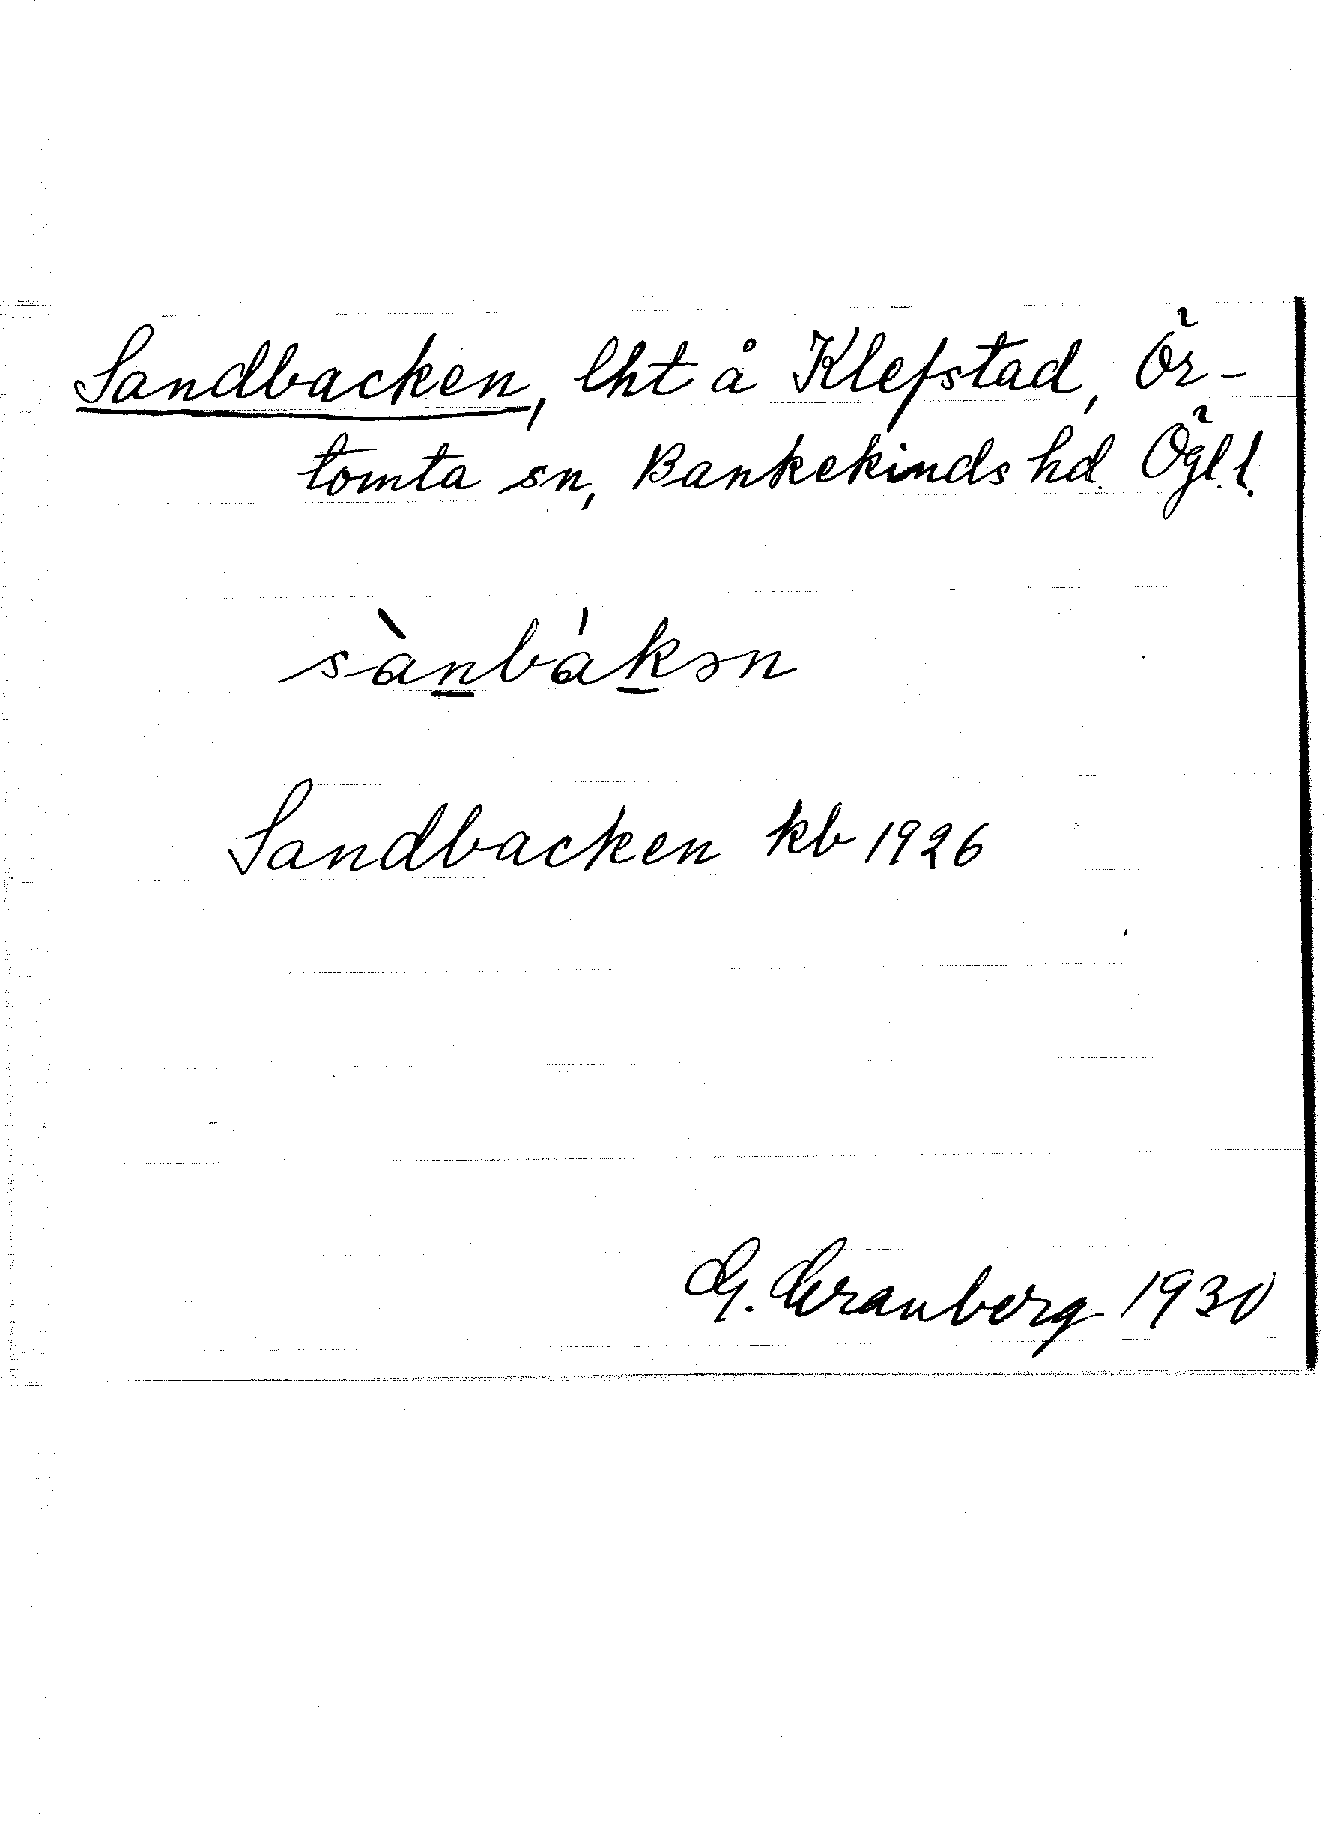 Sandbacken, lht å Klefstad, Ör-
tomta sn, Bankekinds hd. Ögl. l.
sànbákən
Sandbacken kb 1926
G. Granberg 1930